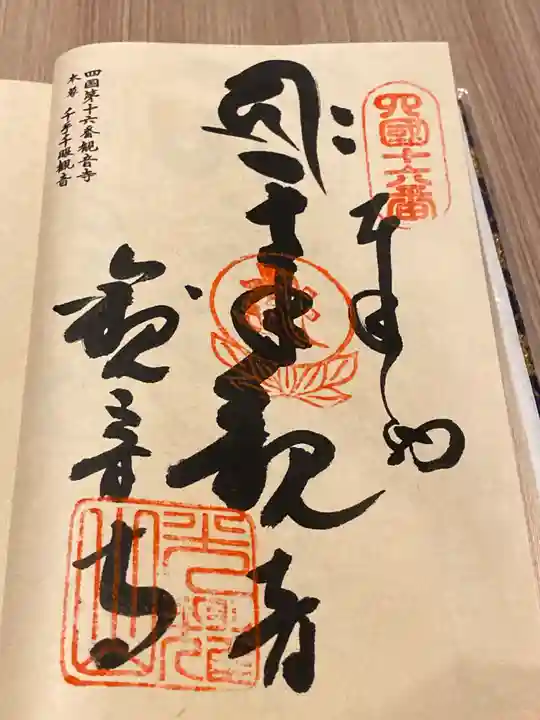 四國十六番
奉納
千手観音
観音寺
光耀山
四国第十六番観音寺
本尊 千手千眼観音